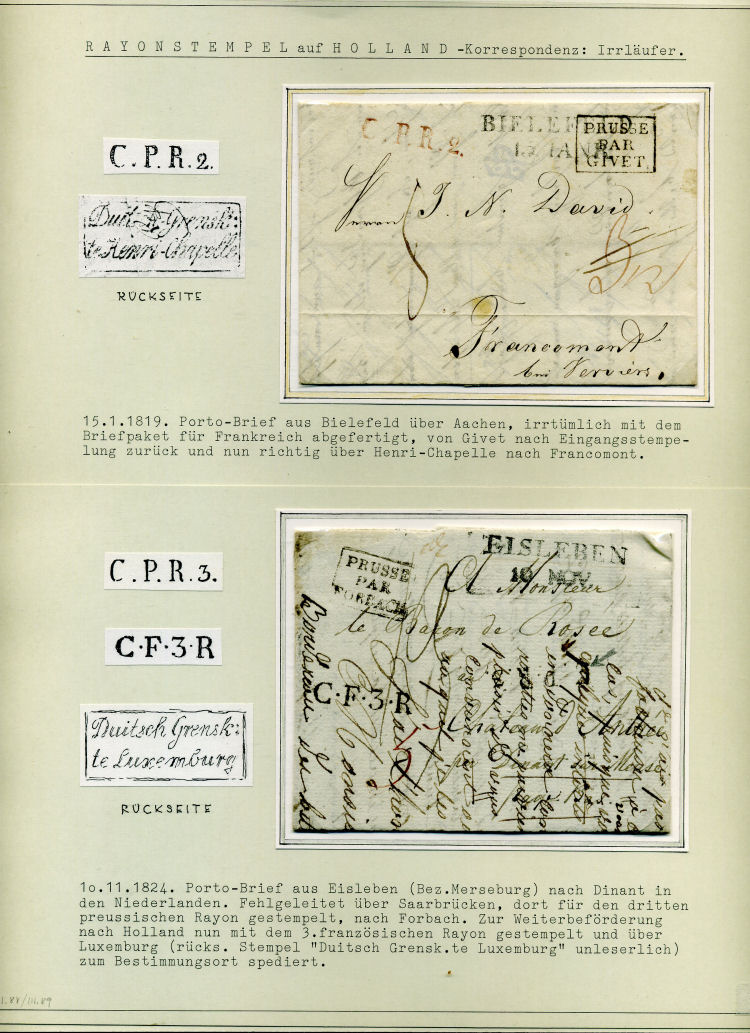 RAYONSTEMPEL auf HOLLAND -Korrespondenz: Irrläufer.
C.P.R.2.
Duitsch Grensk:
te Henri-Chapelle
RÜCKSEITE
C.P.R.2.
BIELEFELD
15 IANR
PRUSSE
PAR
GIVET.
Herrn J. N. David.
Francomont
bei Verviers.
15.1.1819. Porto-Brief aus Bielefeld über Aachen, irrtümlich mit dem
Briefpaket für Frankreich abgefertigt, von Givet nach Eingangsstempe-
lung zurück und nun richtig über Henri-Chapelle nach Francomont.
C.P.R.3.
C·F·3·R
Duitsch Grensk:
te Luxemburg
RÜCKSEITE
PRUSSE
PAR
FORBACH
EISLEBEN
10 NOV
A Monsieur
le Baron de Rosée
C·F·3·R
1o.11.1824. Porto-Brief aus Eisleben (Bez.Merseburg) nach Dinant in
den Niederlanden. Fehlgeleitet über Saarbrücken, dort für den dritten
preussischen Rayon gestempelt, nach Forbach. Zur Weiterbeförderung
nach Holland nun mit dem 3.französischen Rayon gestempelt und über
Luxemburg (rücks. Stempel "Duitsch Grensk.te Luxemburg" unleserlich)
zum Bestimmungsort spediert.